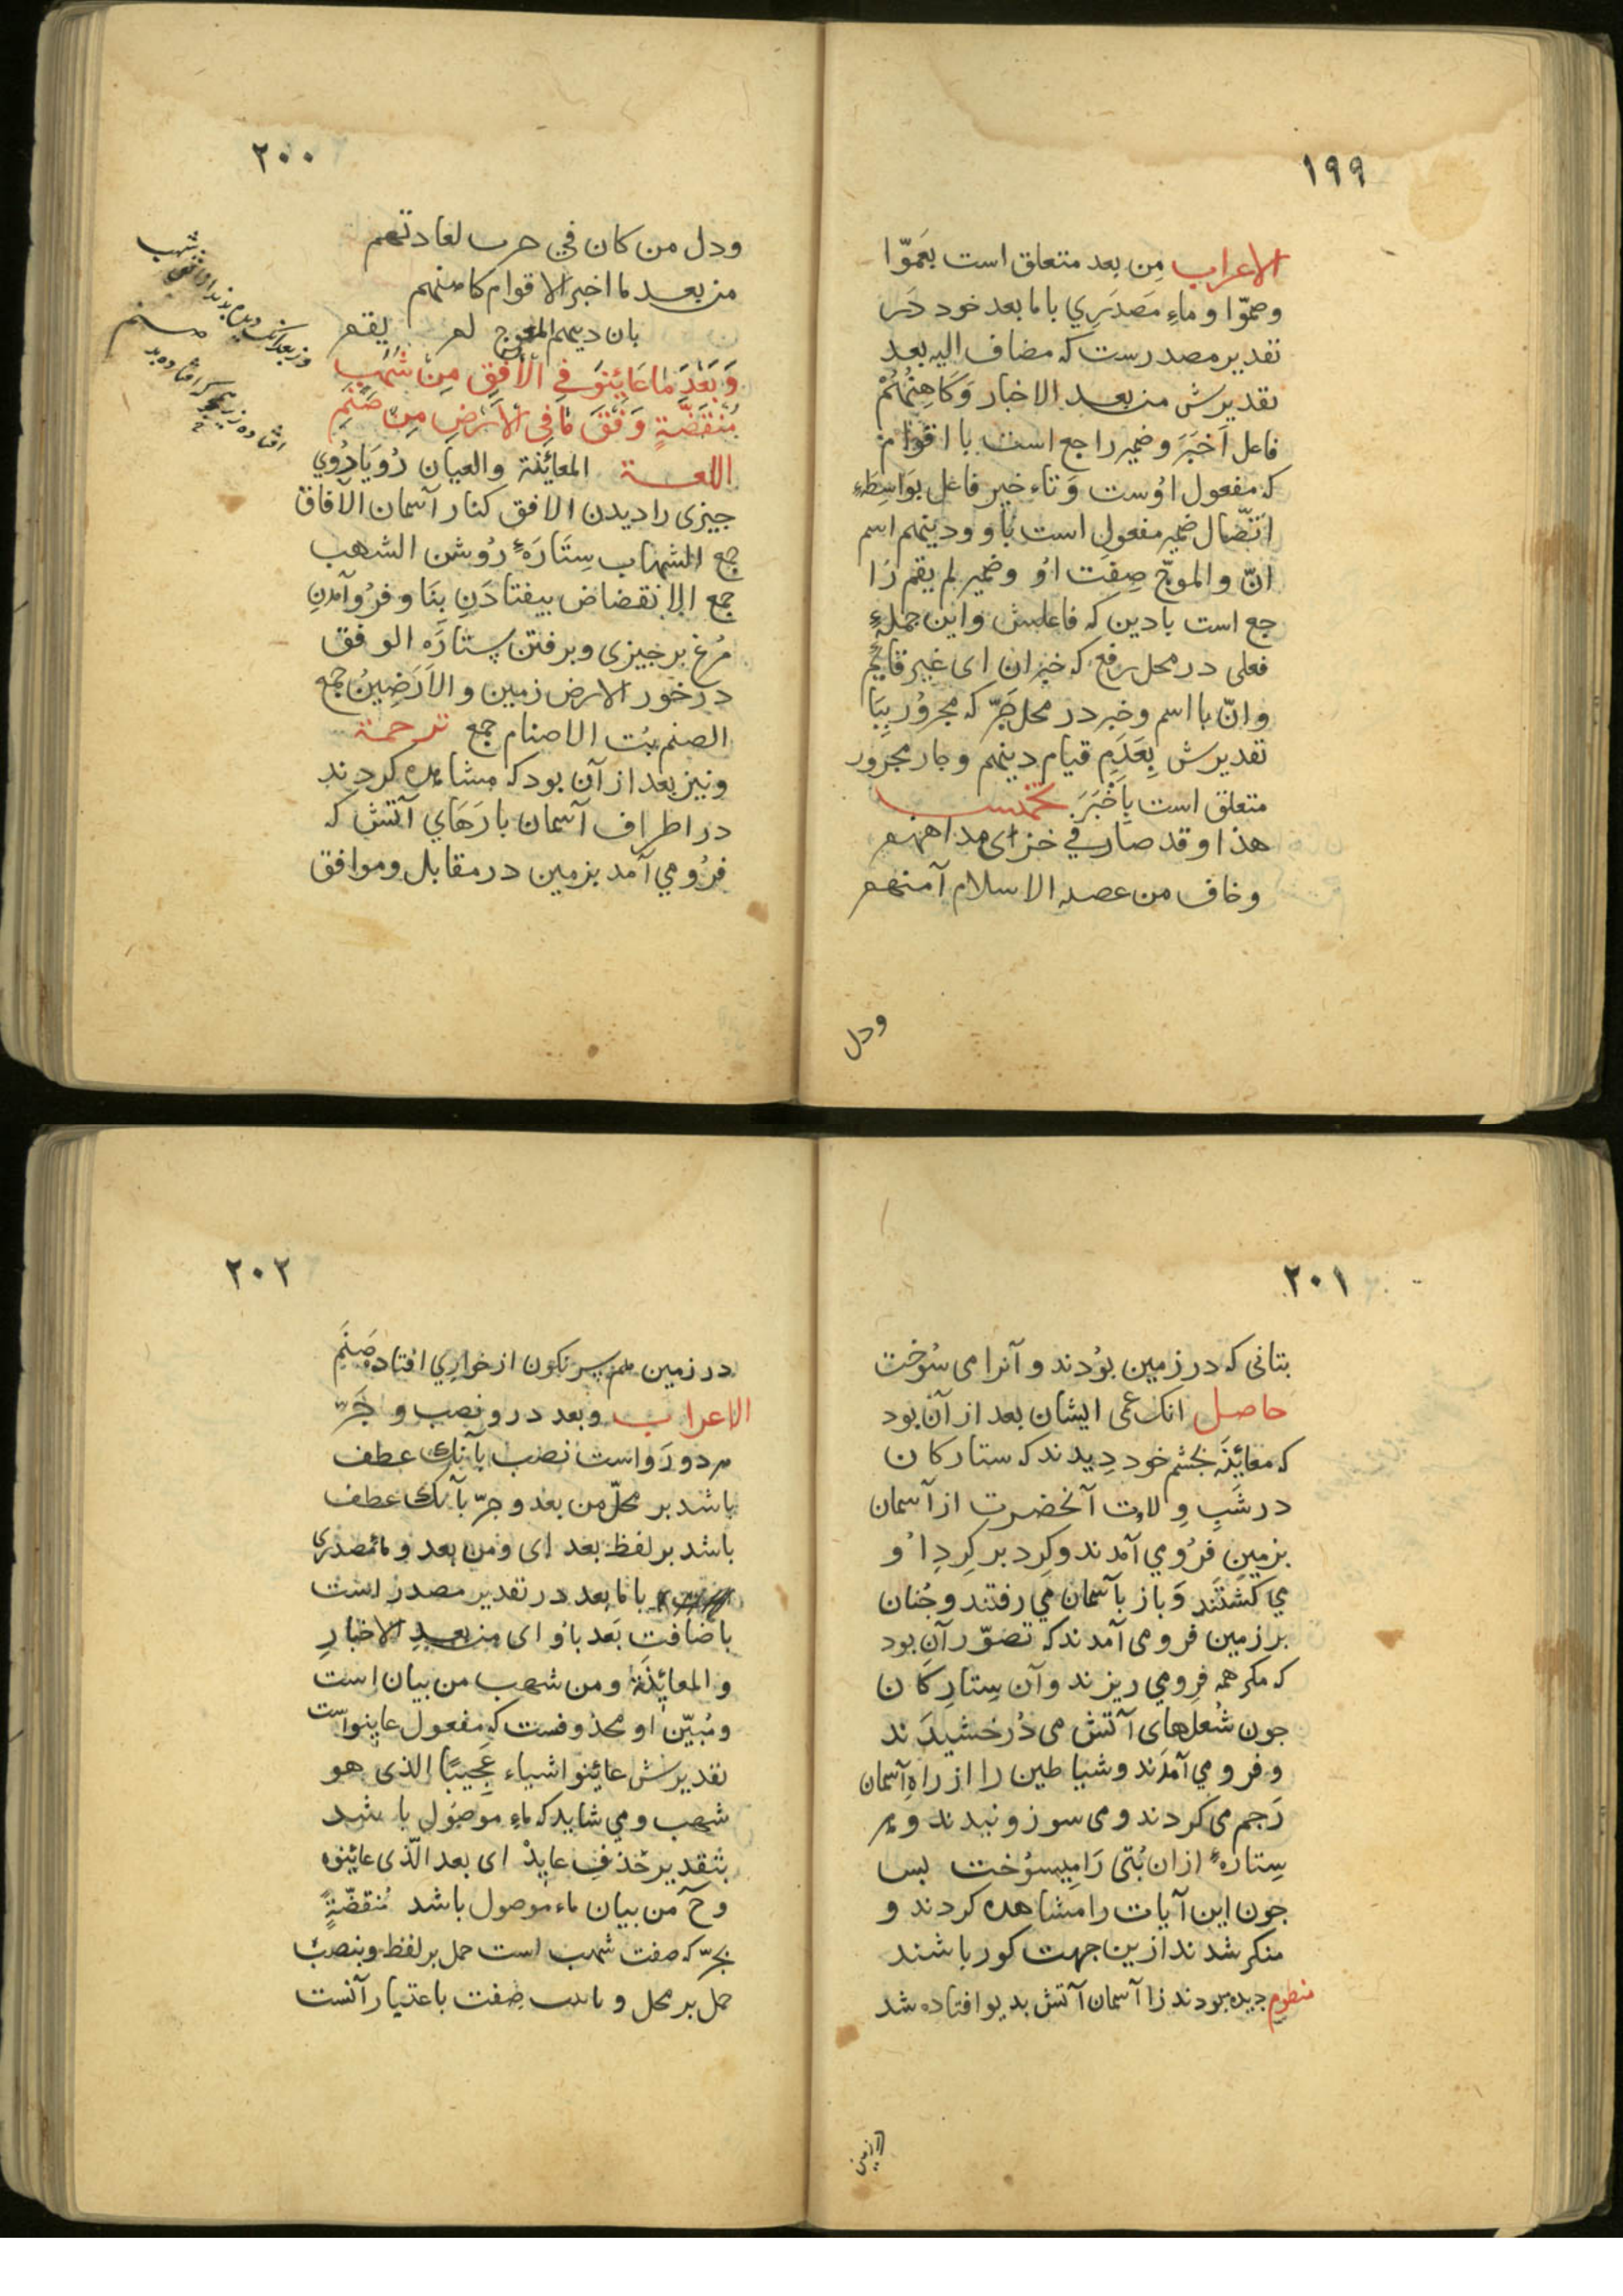 ١٩٩
الاعراب مِن بعد متعلق است بعَموّا
وصمّوا و ماءِ مَصدَرِي باما بعد خود دَر
تقدیر مصدرست که مضاف الیه بعد
تقدیرش من بعد الاخبار وَكَاهِنُهُمْ
فاعل اَخبَرَ و ضمیر راجع است با اقوام
که مفعول اوُست وَتاء خیر فاعل بوَاسِطَهءِ
اتّصال ضمیر مفعول است باو و دینهم اسم
انّ والموجّ صِفَت اوُ و ضمیر لم یقم رَا
جع است بادین که فاعلش واین جملهءِ
فعلی در محل رفع که خبر ان ای غیر قائِمٌ
وانّ با اسم وخبر در محل جَرّ که مجرُور بِبَا
تقدیرش بِعَدَمِ قیام دینهم و جار مجرور
متعلق است بِاَخْبَرَ تخمیس
هذا وقد صار في خزای مداهنهم
وخاف من عصبه الاسلام آمنهم
ودل
٢٠٠
ودل من كان في حرب لعادتهم
من بعد ما اخبر الاقوام كاهنهم
بان دينهم المعوج لم يقم
وَبَعْدَ مَا عَايَنُوا فِي الْأُفُقِ مِنْ شُهُبٍ
مُنْقَضَّةٍ وَفْقَ مَا فِي الْاَرْضِ مِنْ صَنَمِ
اللغــة المعائِنة والعیان رُویَارُوي
جیزی را دیدن الافق کنار آسمان الآفاق
جمع الشهاب سِتَارَهءِ رُوشن الشهب
جمع الإنقضاض بیفتادَنِ بِنَا و فرُوآمدنِ
مُرغ بر جیزی و برفتن سِتارَه الوفق
در خور الارض زمین و الاَرَضِینُ جمع
الصنم بُت الاصنام جمع ترحمة
ونیز بعد از آن بود که مشاهده کردند
در اطراف آسمان بارَهَاي آتش که
فرُو مي آمد بزمین در مقابل و موافق
وز بعد آنک دیدم بدند از افق شهب
افتاده زیر کر افتاده بد صنم
٢٠١
بتانی که در زمین بوُدند و آنرا می سُوخت
حاصل انک عمی ایشان بعد از آن بود
که معائِنَه بجشم خود دِیدند که ستارکان
در شَبِ وِلادت آنحضرت از آسمان
بزمین فرُو مي آمدند وکِرد بر کِردِ اوُ
مي کشتَند وَباز بآسمان مي رفتند وجُنان
بر زمین فرو می آمدند که تصوّر آن بود
که مکر همه فِرو مي ریزند و آن سِتارِکان
جون شُعلهای آتش می دُرخشیدَند
و فرو مي آمدَند و شیاطین را از راهِ آسمان
رَجم می کردند و می سوزونیدند و هر
سِتارهءِ از ان بُتی رَا مِیسوُخت بس
جون این آیات را مشاهده کردند و
منکر شدند ازین جهت کور باشند
منظوم دیده بودند زا آسمان آتش بدیو افتاده شد
در زمین
٢٠٢
در زمین هم سرنکون از خوارِي افتاده صَنَمِ
الاعراب وبعد درو نصب و جَرّ
هر دو رَواست نصب بآنک عطف
باشد بر محلّ من بعد و جرّ بآنک عطف
باشد بر لفظ بعد ای ومن بعد و ماءمصدری
باما بعد در تقدیر مصدر است
باضافتِ بَعد باوُ ای من بعدِ الاخبارِ
والمعایِنَة ومن شهب من بیان است
ومُبیّن او محذوفست که مفعول عاینوا است
تقدیرش عائِنوا اشیاء عَجِیبًا الذی هو
شهب ومي شاید که ماءِ موصوُل باشد
بتقدیر حَذفِ عایدْ ای بعد الّذی عائِنوه
وحَ من بیان ماء موصول باشد مُنقضّةٍ
بجرّ که صفت شهب است حمل بر لفظ و بنصب
حمل بر محل و مانیث صِفت باعتبار آنست